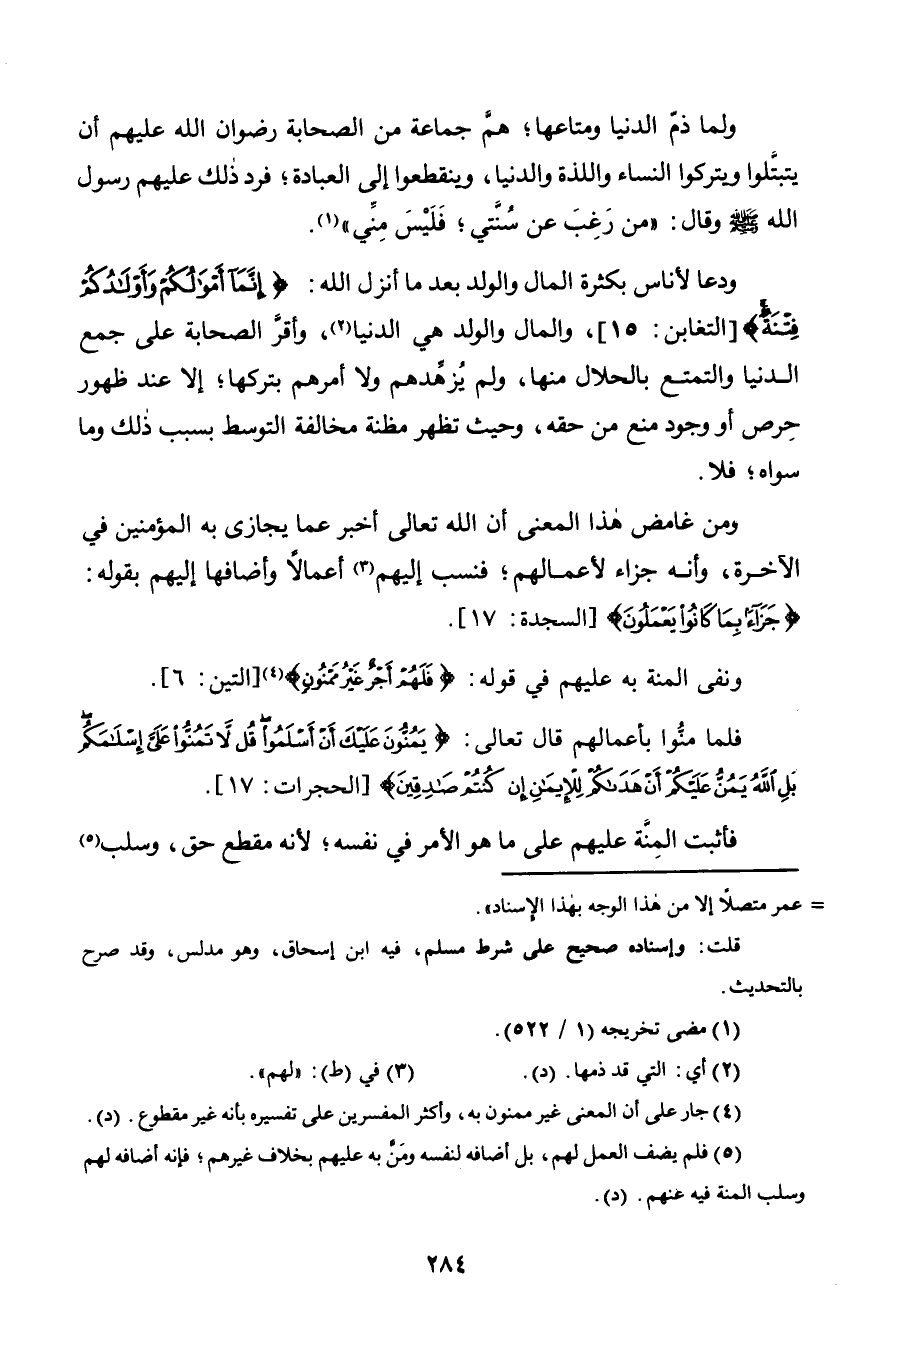 ولما ذمّ الدنيا ومتاعها؛ همَّ جماعة من الصحابة رضوان الله عليهم أن
يتبتَّلوا ويتركوا النساء واللذة والدنيا، وينقطعوا إلى العبادة؛ فرد ذٰلك عليهم رسول
الله ﷺ وقال: «من رَغِبَ عن سُنَّتي؛ فَلَيْسَ مِنِّي»(١).
ودعا لأناس بكثرة المال والولد بعد ما أنزل الله: ﴿إِنَّمَآ أَمْوَٰلُكُمْ وَأَوْلَٰدُكُمْ
فِتْنَةٌ﴾ [التغابن: ١٥]، والمال والولد هي الدنيا(٢)، وأقرَّ الصحابة على جمع
الدنيا والتمتع بالحلال منها، ولم يُزهِّدهم ولا أمرهم بتركها؛ إلا عند ظهور
حِرص أو وجود منع من حقه، وحيث تظهر مظنة مخالفة التوسط بسبب ذٰلك وما
سواه؛ فلا.
ومن غامض هٰذا المعنى أن الله تعالى أخبر عما يجازى به المؤمنين في
الآخرة، وأنه جزاء لأعمالهم؛ فنسب إليهم(٣) أعمالًا وأضافها إليهم بقوله:
﴿جَزَآءًۢ بِمَا كَانُوا۟ يَعْمَلُونَ﴾ [السجدة: ١٧].
ونفى المنة به عليهم في قوله: ﴿فَلَهُمْ أَجْرٌ غَيْرُ مَمْنُونٍ﴾(٤) [التين: ٦].
فلما منُّوا بأعمالهم قال تعالى: ﴿يَمُنُّونَ عَلَيْكَ أَنْ أَسْلَمُوا۟ۖ قُل لَّا تَمُنُّوا۟ عَلَىَّ إِسْلَٰمَكُمۖ
بَلِ ٱللَّهُ يَمُنُّ عَلَيْكُمْ أَنْ هَدَىٰكُمْ لِلْإِيمَٰنِ إِن كُنتُمْ صَٰدِقِينَ﴾ [الحجرات: ١٧].
فأثبت المِنَّة عليهم على ما هو الأمر في نفسه؛ لأنه مقطع حق، وسلب(٥)
= عمر متصلًا إلا من هٰذا الوجه بهٰذا الإسناد».
قلت: وإسناده صحيح على شرط مسلم، فيه ابن إسحاق، وهو مدلس، وقد صرح
بالتحديث.
(١) مضى تخريجه (١ / ٥٢٢).
(٢) أي: التي قد ذمها. (د). (٣) في (ط): «لهم».
(٤) جار على أن المعنى غير ممنون به، وأكثر المفسرين على تفسيره بأنه غير مقطوع. (د).
(٥) فلم يضف العمل لهم، بل أضافه لنفسه ومَنَّ به عليهم بخلاف غيرهم؛ فإنه أضافه لهم
وسلب المنة فيه عنهم. (د).
٢٨٤